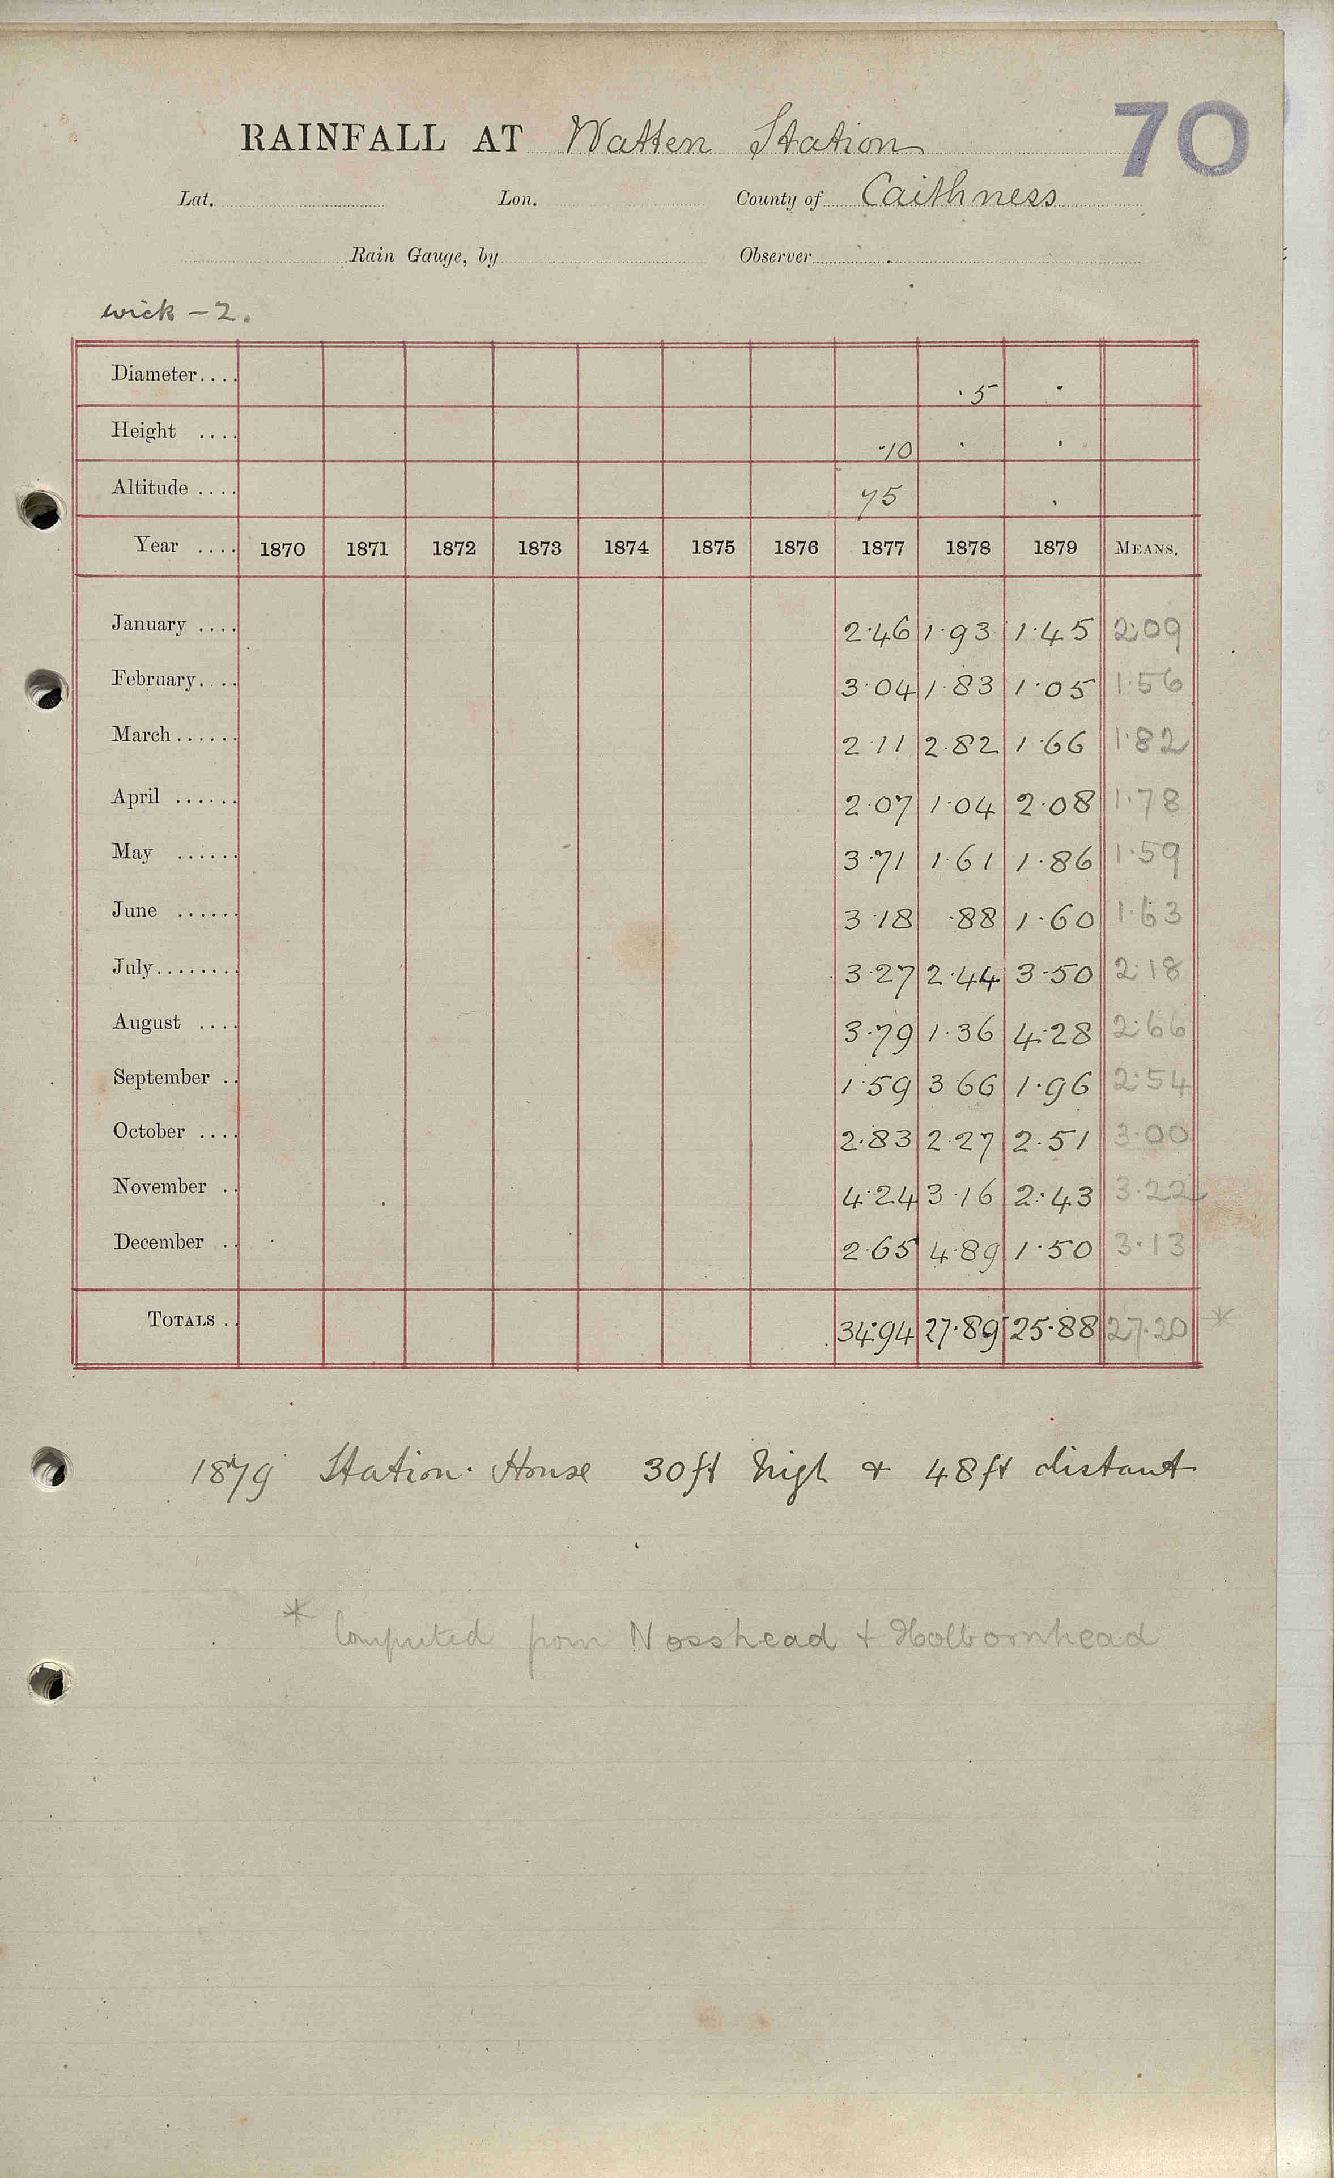 70
RAINFALL AT Watten Station
Lat. Lon. County of Caithness
Rain Gauge, by Observer
Wick - 2.
Diameter.... ·5 ·
Height .... ·10 · ·
Altitude .... 75 ·
Year .... 1870 1871 1872 1873 1874 1875 1876 1877 1878 1879 MEANS.
January .... 2·46 1·93 1·45 2·09
February. .. 3·04 1·83 1·05 1·56
March...... 2·11 2·82 1·66 1·82
April ...... 2·07 1·04 2·08 1·78
May ...... 3·71 1·61 1·86 1·59
June ...... 3·18 ·88 1·60 1·63
July........ 3·27 2·44 3·50 2·18
August .... 3·79 1·36 4·28 2·66
September .. 1·59 3 66 1·96 2·54
October .... 2·83 2 27 2·51 3·00
November .. 4·24 3·16 2·43 3·22
December .. 2·65 4·89 1·50 3·13
TOTALS .. 34·94 27·89 25·88 27·20 *
1879 Station House 30ft high & 48ft distant
* Computed from Nosshead + Holbornhead